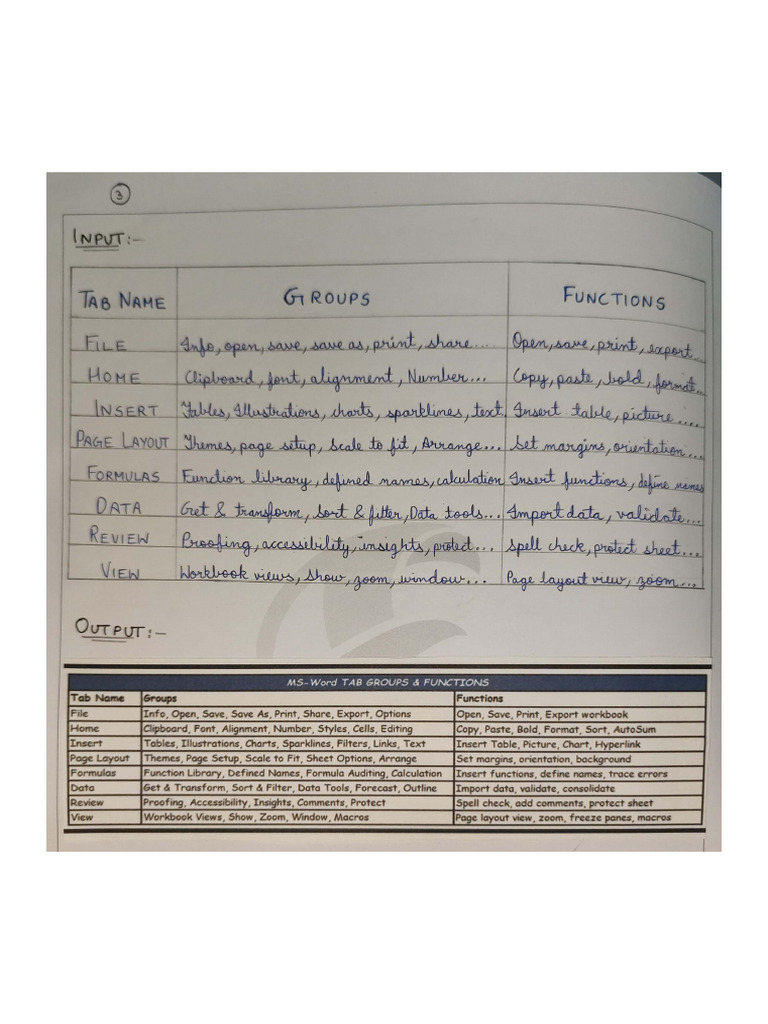 3
INPUT:-
TAB NAME GROUPS FUNCTIONS
FILE Info, open, save, save as, print, share.... Open, save, print, export...
HOME Clipboard, font, alignment, Number... Copy, paste, bold, format...
INSERT Tables, Illustrations, charts, sparklines, text. Insert table, picture.....
PAGE LAYOUT Themes, page setup, Scale to fit, Arrange... Set margins, orientation...
FORMULAS Function library, defined names, calculation Insert functions, define names
DATA Get & transform, Sort & filter, Data tools... Import data, validate...
REVIEW Proofing, accessibility, insights, protect... Spell check, protect sheet...
VIEW Workbook views, Show, zoom, window... Page layout view, zoom...
OUTPUT:-
MS-Word TAB GROUPS & FUNCTIONS
Tab Name Groups Functions
File Info, Open, Save, Save As, Print, Share, Export, Options Open, Save, Print, Export workbook
Home Clipboard, Font, Alignment, Number, Styles, Cells, Editing Copy, Paste, Bold, Format, Sort, AutoSum
Insert Tables, Illustrations, Charts, Sparklines, Filters, Links, Text Insert Table, Picture, Chart, Hyperlink
Page Layout Themes, Page Setup, Scale to Fit, Sheet Options, Arrange Set margins, orientation, background
Formulas Function Library, Defined Names, Formula Auditing, Calculation Insert functions, define names, trace errors
Data Get & Transform, Sort & Filter, Data Tools, Forecast, Outline Import data, validate, consolidate
Review Proofing, Accessibility, Insights, Comments, Protect Spell check, add comments, protect sheet
View Workbook Views, Show, Zoom, Window, Macros Page layout view, zoom, freeze panes, macros